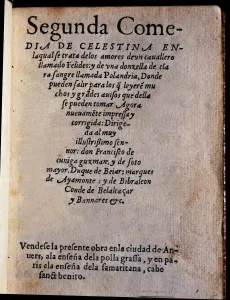 Segunda Come-
DIA DE CELESTINA EN-
laqual se trata delos amores de vn cauallero
llamado Felides: y de vna donzella de cla
ra sangre llamada Polandria, Donde
pueden salir para los q̃ leyerẽ mu
chos y grãdes auisos que della
se pueden tomar Agora
nueuamẽte impressa y
corrigida: Dirigi-
da al muy
illustrissimo sen-
nor: don Francisco de
çuniga guzman, y de soto
mayor. Duque de Beiar: marques
de Ayamonte: y de Bibraleon
Conde de Belalcaçar
y Bannares etc.
Vendese la presente obra enla ciudad de An-
uers, ala enseña dela polla grassa, y en pa-
ris ala enseña dela samaritana, cabe
sanct benito.